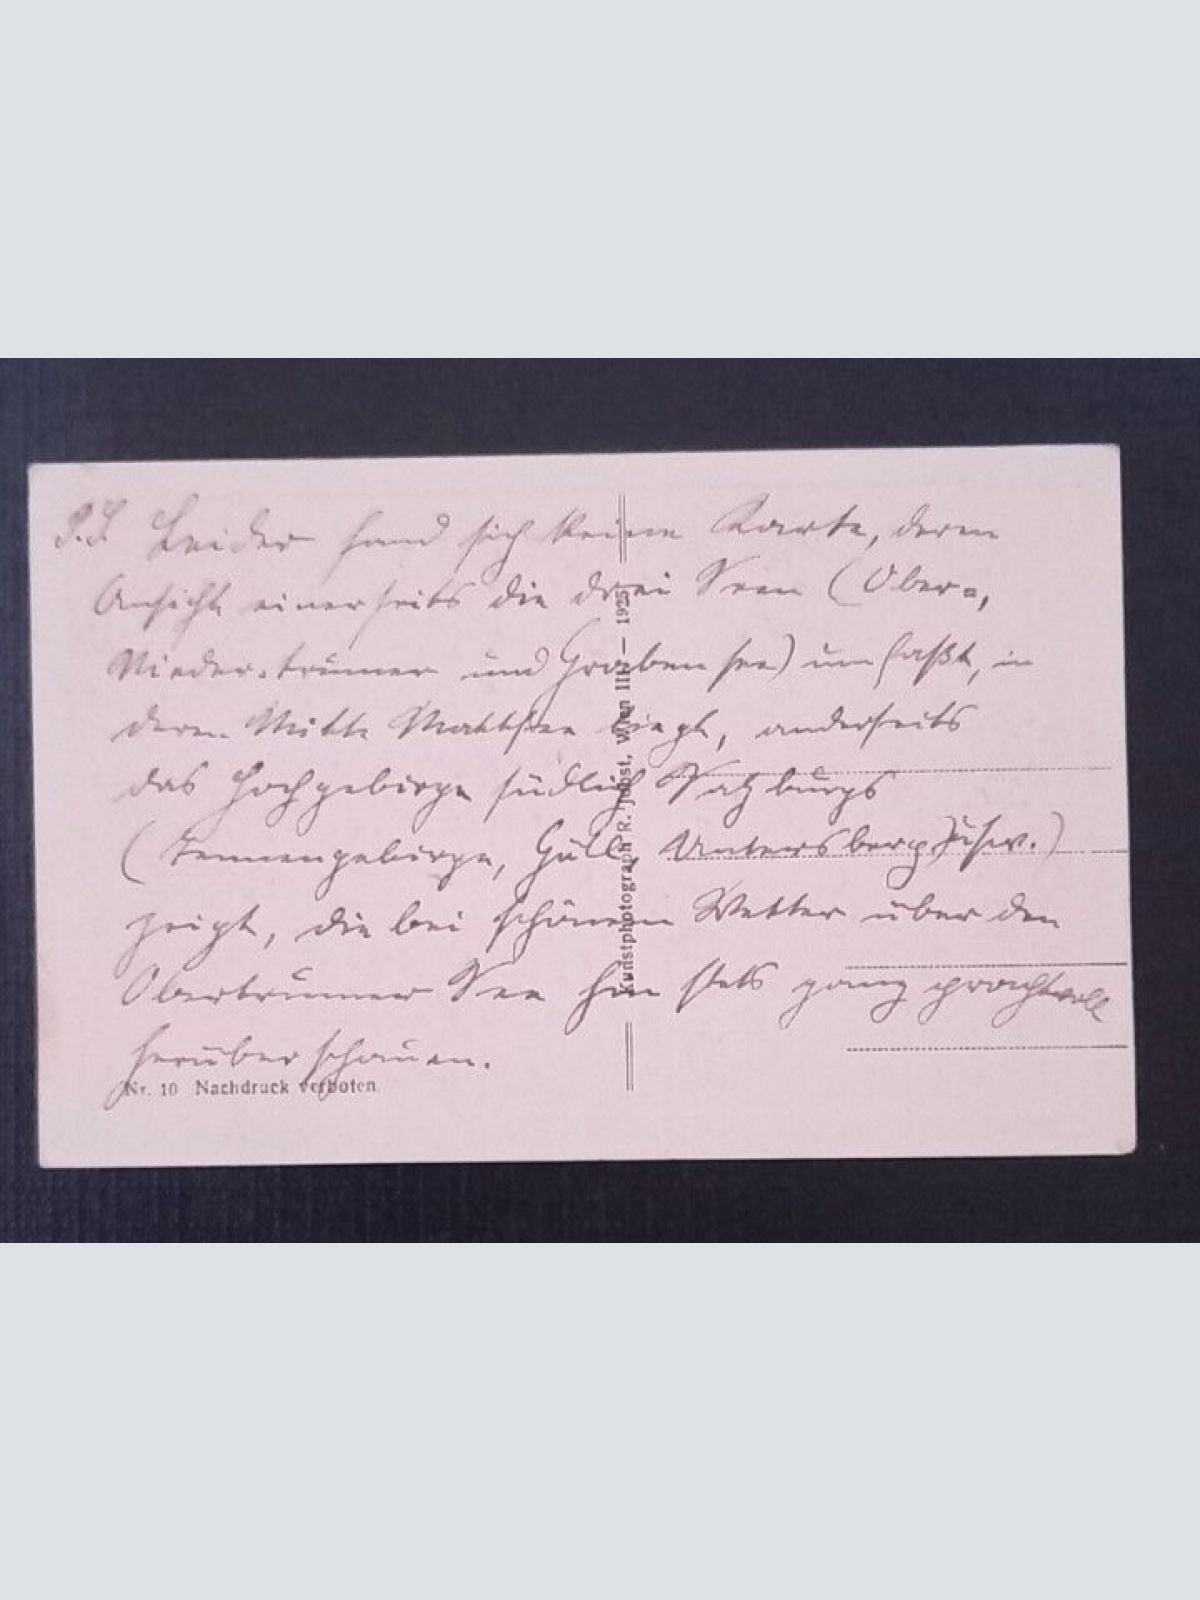 P.S. Leider fand sich keine Karte, deren
Ansicht einerseits die drei Seen (Ober-,
Nieder-trumer und Grabensee) umfaßt, in
deren Mitte Mattsee liegt, anderseits
das Hochgebirge südlich Salzburgs
(Tennengebirge, Göll, Untersberg usw.)
zeigt, die bei schönem Wetter über den
Obertrumer See hin stets ganz prachtvoll
herüberschauen.
Nr. 10 Nachdruck verboten.
Kunstphotograph R. Wien III — 1925